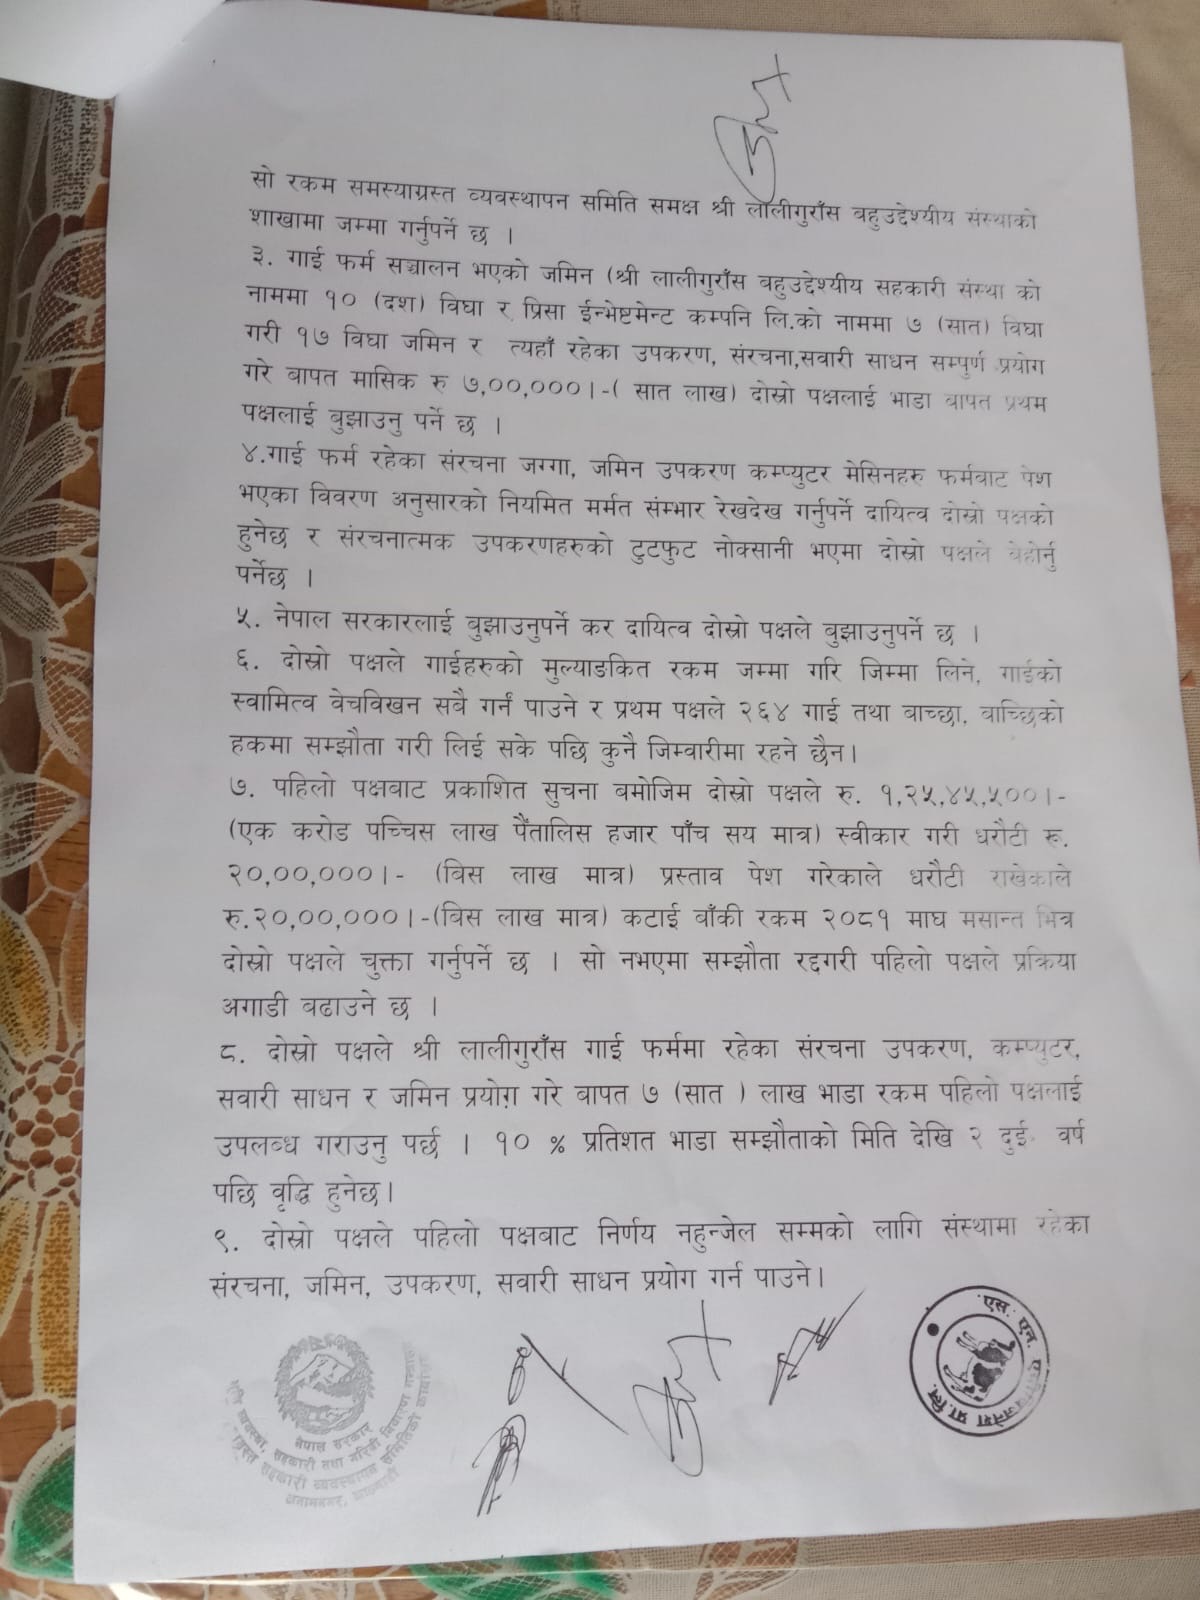 सो रकम समस्याग्रस्त व्यवस्थापन समिति समक्ष श्री लालीगुराँस बहुउद्देश्यीय संस्थाको
शाखामा जम्मा गर्नुपर्ने छ ।
३. गाई फर्म सञ्चालन भएको जमिन (श्री लालीगुराँस बहुउद्देश्यीय सहकारी संस्था को
नाममा १० (दश) विघा र प्रिसा ईन्भेष्टमेन्ट कम्पनि लि.को नाममा ७ (सात) विघा
गरी १७ विघा जमिन र त्यहाँ रहेका उपकरण, संरचना,सवारी साधन सम्पुर्ण प्रयोग
गरे बापत मासिक रु ७,००,०००।-( सात लाख) दोस्रो पक्षलाई भाडा बापत प्रथम
पक्षलाई बुझाउनु पर्ने छ ।
४.गाई फर्म रहेका संरचना जग्गा, जमिन उपकरण कम्प्युटर मेसिनहरु फर्मबाट पेश
भएका विवरण अनुसारको नियमित मर्मत संम्भार रेखदेख गर्नुपर्ने दायित्व दोस्रो पक्षको
हुनेछ र संरचनात्मक उपकरणहरुको टुटफुट नोक्सानी भएमा दोस्रो पक्षले बेहोर्नु
पर्नेछ ।
५. नेपाल सरकारलाई बुझाउनुपर्ने कर दायित्व दोस्रो पक्षले बुझाउनुपर्ने छ ।
६. दोस्रो पक्षले गाईहरुको मुल्याङकित रकम जम्मा गरि जिम्मा लिने, गाईको
स्वामित्व वेचविखन सबै गर्नं पाउने र प्रथम पक्षले २६४ गाई तथा बाच्छा, बाच्छिको
हकमा सम्झौता गरी लिई सके पछि कुनै जिम्वारीमा रहने छैन।
७. पहिलो पक्षबाट प्रकाशित सुचना बमोजिम दोस्रो पक्षले रु. १,२५,४५,५००।-
(एक करोड पच्चिस लाख पैंतालिस हजार पाँच सय मात्र) स्वीकार गरी धरौटी रू.
२०,००,०००।- (बिस लाख मात्र) प्रस्ताव पेश गरेकाले धरौटी राखेकाले
रु.२०,००,०००।-(बिस लाख मात्र) कटाई बाँकी रकम २०८१ माघ मसान्त भित्र
दोस्रो पक्षले चुक्ता गर्नुपर्ने छ । सो नभएमा सम्झौता रद्दगरी पहिलो पक्षले प्रक्रिया
अगाडी बढाउने छ ।
८. दोस्रो पक्षले श्री लालीगुराँस गाई फर्ममा रहेका संरचना उपकरण, कम्प्युटर,
सवारी साधन र जमिन प्रयोग़ गरे बापत ७ (सात ) लाख भाडा रकम पहिलो पक्षलाई
उपलब्ध गराउनु पर्छ । १० % प्रतिशत भाडा सम्झौताको मिति देखि २ दुई वर्ष
पछि वृद्धि हुनेछ।
९. दोस्रो पक्षले पहिलो पक्षबाट निर्णय नहुन्जेल सम्मको लागि संस्थामा रहेका
संरचना, जमिन, उपकरण, सवारी साधन प्रयोग गर्न पाउने।
नेपाल सरकार
व्यवस्था, सहकारी तथा गरिबी निवारण मन्त्रालय
सहकारी व्यवस्थापन समितिको कार्यालय
एस. एन. प्रा. लि.